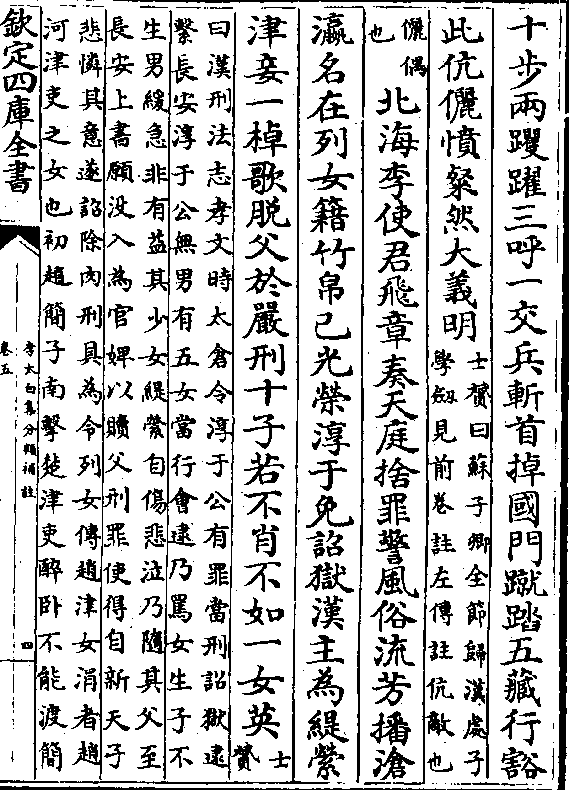 十步兩躩躍三呼一交兵斬首掉國門蹴踏五藏行豁
此伉儷憤粲然大義明
士贇曰蘇子卿全節歸漢處子
學劔見前卷註左傳註伉敵也
儷偶
也
北海李使君飛章奏天庭捨罪警風俗流芳播滄
瀛名在列女籍竹帛已光榮淳于免詔獄漢主為緹縈
津妾一棹歌脱父於嚴刑十子若不肖不如一女英
士
贇
曰漢刑法志孝文時太倉令淳于公有罪當刑詔獄逮
繫長安淳于公無男有五女當行會逮乃罵女生子不
生男緩急非有益其少女緹縈自傷悲泣乃隨其父至
長安上書願没入為官婢以贖父刑罪使得自新天子
悲憐其意遂詔除肉刑具為令列女傳趙津女涓者趙
河津吏之女也初趙簡子南擊楚津吏醉卧不能渡簡
欽定四庫全書
李太白集分類補註
卷五
四